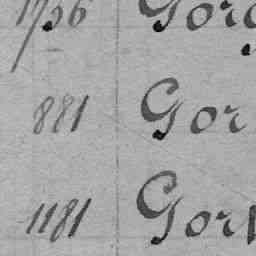 1756 Gorg
881 Gor
1181 Gorn